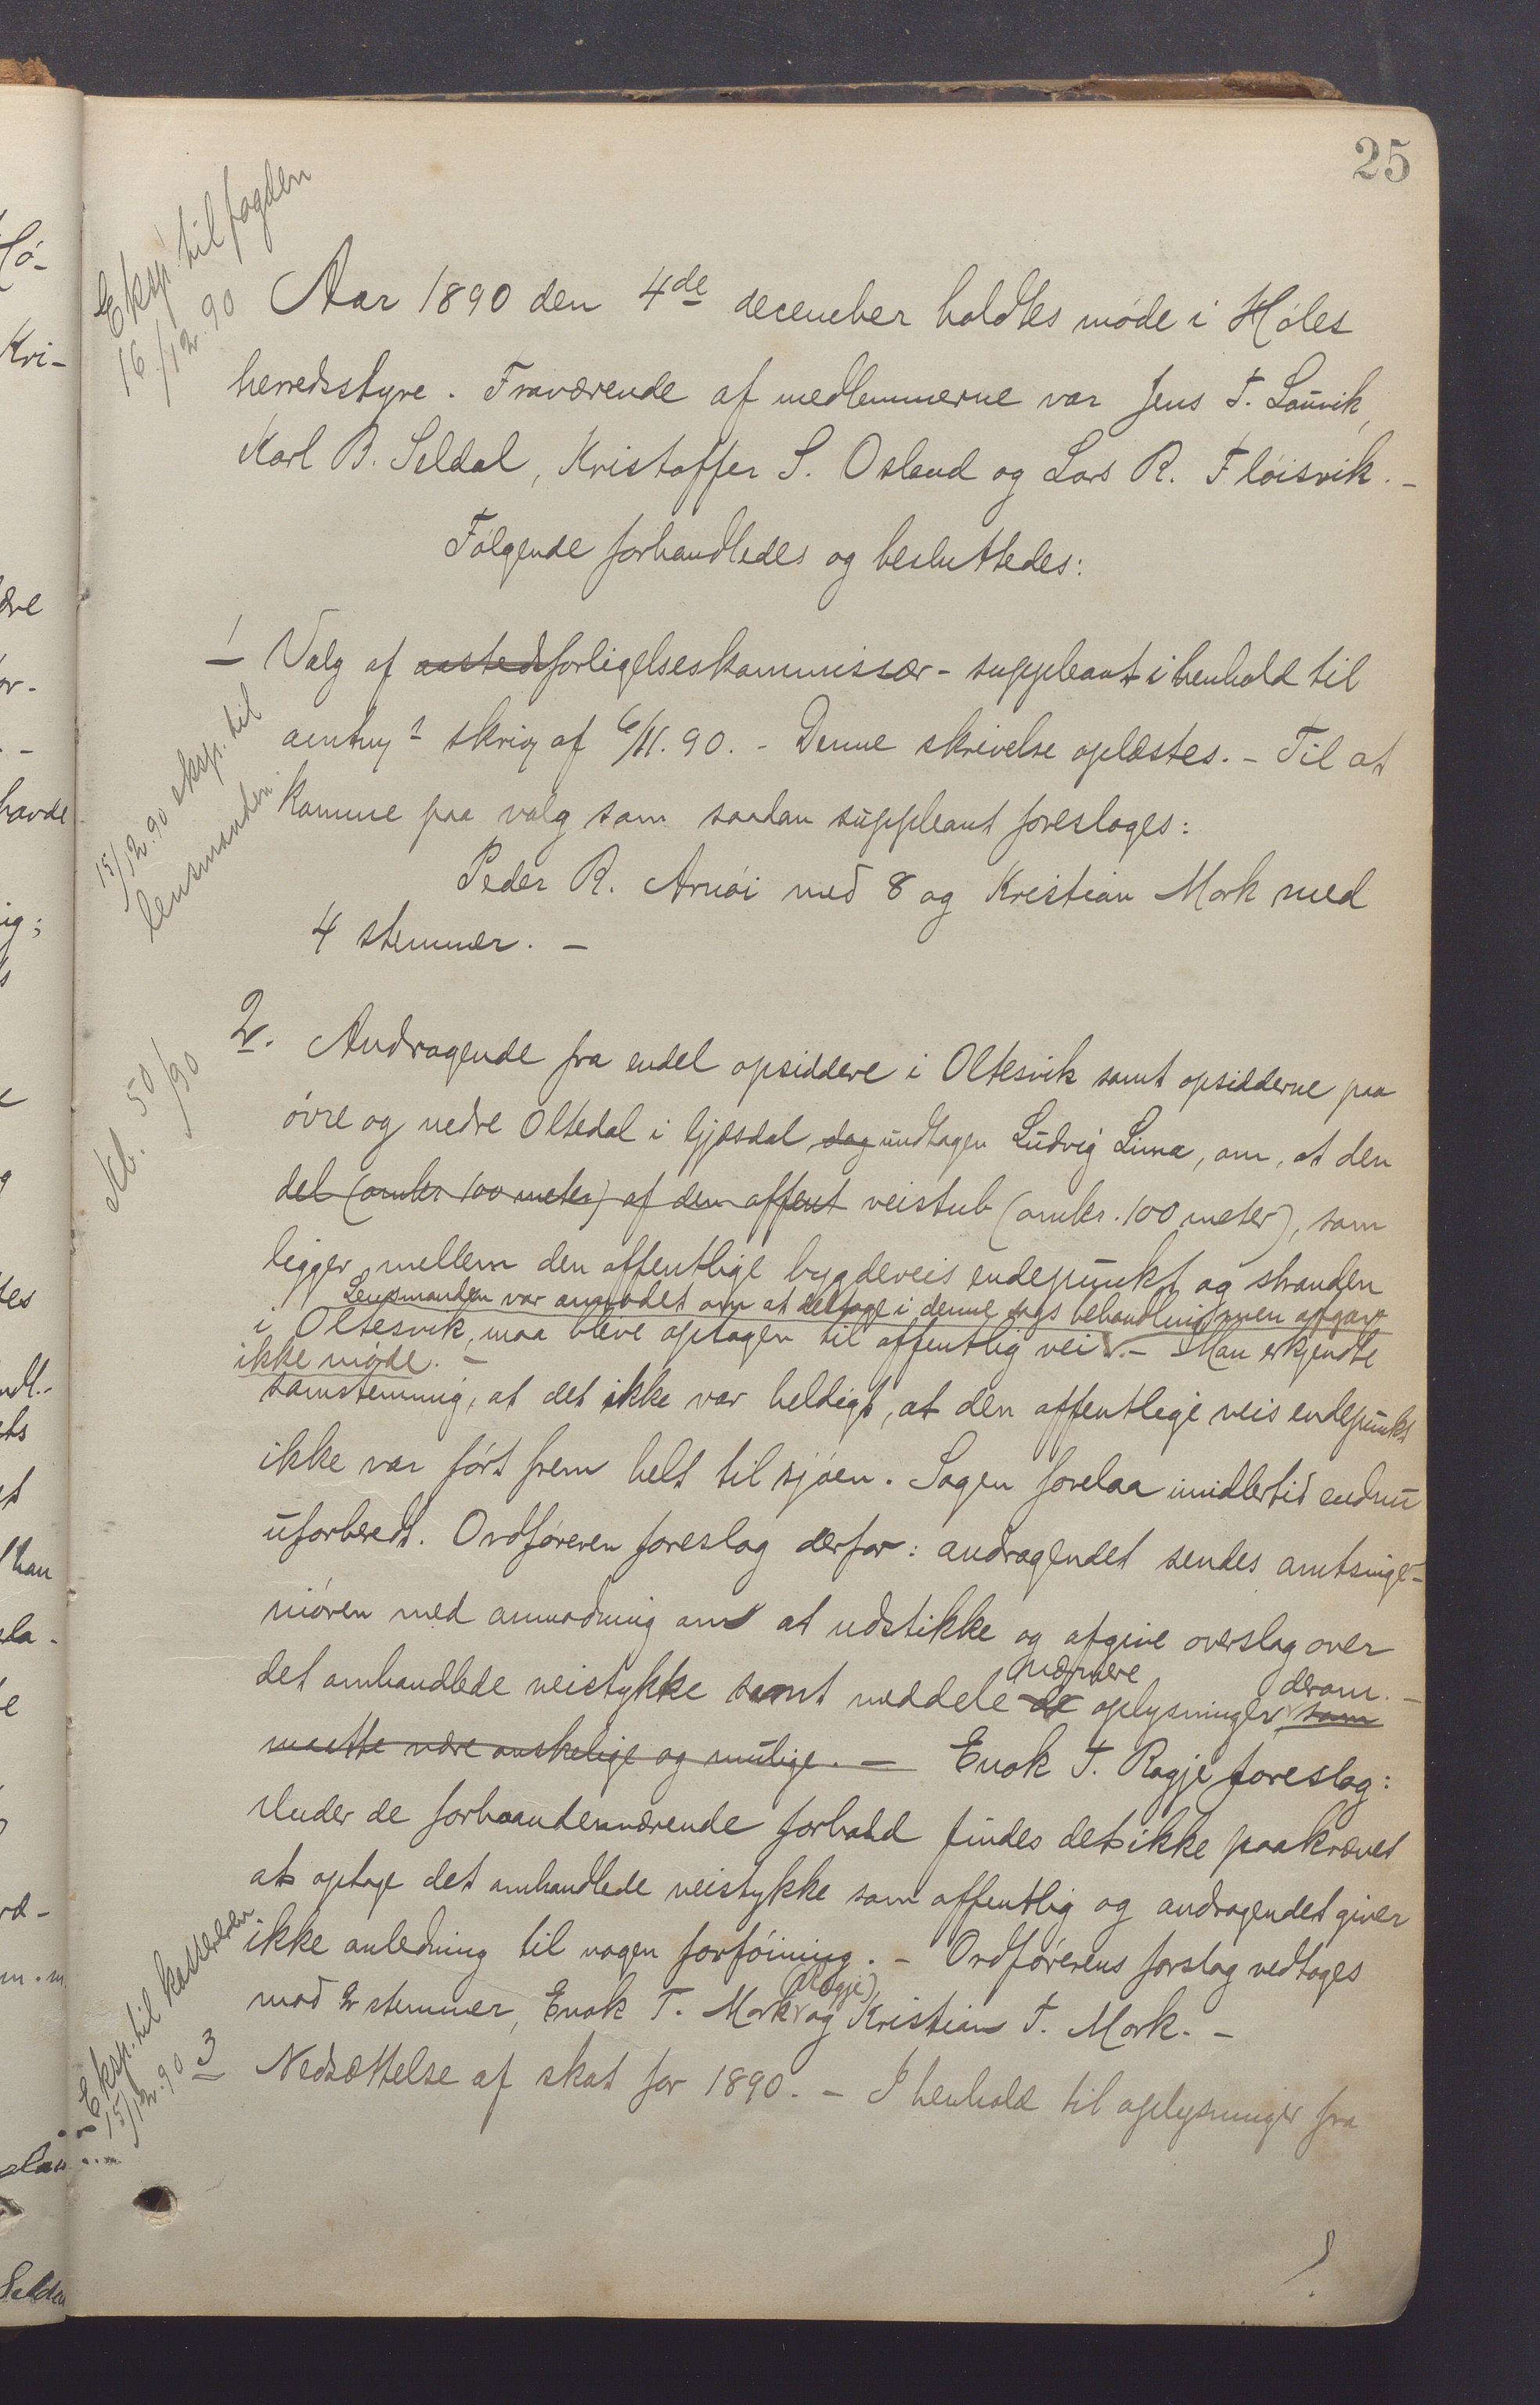 25
Eksp. til fogden
16/12.90
Aar 1890 den 4de december holdtes møde i Høles
herredsstyre. Fraværende af medlemmerne var Jens T. Lauvik,
Karl B. Seldal, Kristoffer S. Osland og Lars R. Fløisvik. –
Følgende forhandledes og besluttedes:
1 Valg af aasteds forligelseskommissær-suppleant i henhold til
amtm s skriv af 6/11.90. - Denne skrivelse oplæstes. - Til at
komme paa valg som saadan suppleant foresloges:
15/12.90 eksp. til
lensmanden
Peder R. Arnøi med 8 og Kristian Mork med
4 stemmer. –
2. Andragende fra endel opsiddere i Oltesvik samt opsidderne paa
Kb. 50/90
øvre og nedre Oltedal i Gjesdal dog undtagen Ludvig Lima, om, at den
del (omkr 100 meter) af den offent veistub (omkr. 100 meter), som
ligger mellem den offentlige bygdeveis endepunkt og stranden
Lensmanden var anmodet om at deltage i denne sags behandling men afgav
i Oltesvik, maa blive optagen til offentlig vei. – Man erkjendte
ikke møde. –
samstemmig, at det ikke var heldigt, at den offentlige veis endepunkt
ikke var ført frem helt til sjøen. Sagen forelaa imidlertid endnu
uforberedt. Ordføreren foreslog derfor: andragendet sendes amtsinge-
niøren med anmodning om at udstikke og afgive overslag over
nærmere derom. –
det omhandlede veistykke samt meddele de oplysninger som
maatte være ønskelige og mulige. – Enok T. Ragje foreslog:
Under de forhaandenværende forhold findes det ikke paakrævet
at optage det omhandlede veistykke som offentlig og andragendet giver
ikke anledning til nogen forføining. – Ordførerens forslag vedtoges
(Ragje)
mod 2 stemmer, Enok T. Mork og Kristian T. Mork. –
Eksp. til kassereren
15/12.90
3 Nedsættelse af skat for 1890. – I henhold til oplysninger fra